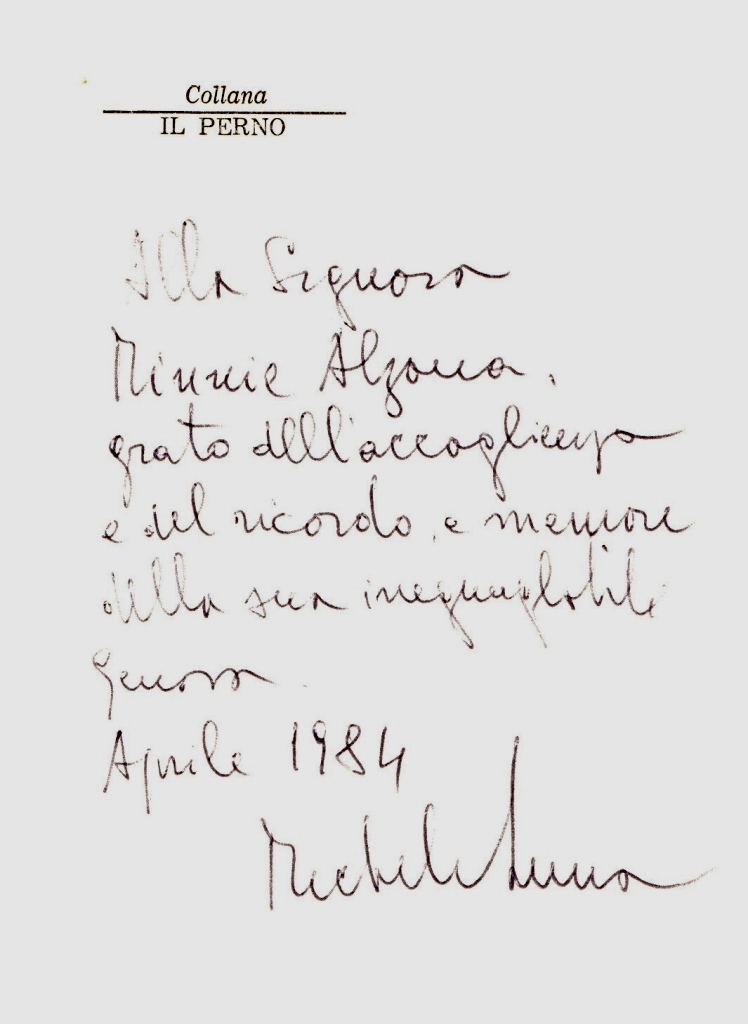 Collana
IL PERNO
Alla Signora
Minnie Alzona,
grato dell'accoglienza
e del ricordo, e memore
della sua ineguagliabile
Genova.
Aprile 1984
Michele